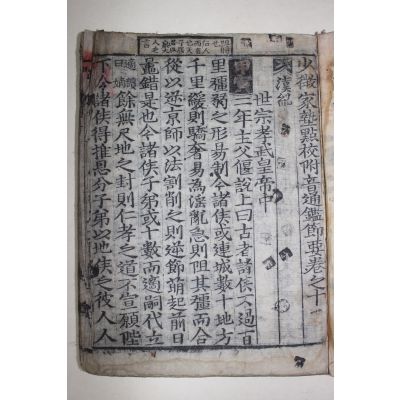 少微家塾點校附音通鑑節要卷之十一
漢紀
世宗孝武皇帝中
三年主父偃說上曰古者諸侯不過百
里彊弱之形易制今諸侯或連城數十地方
千里緩則驕奢易爲淫亂急則阻其彊而合
從以逆京師以法割削之則逆節萌起前日
鼂錯是也今諸侯子弟或十數而適嗣代立
餘無尺地之封則仁孝之道不宣願陛
下令諸侯得推恩分子弟以地侯之彼人人